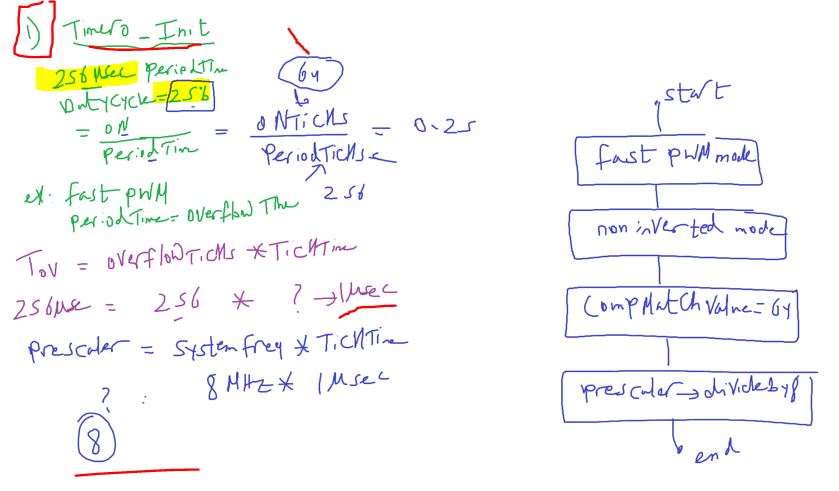 1) Timer0_Init
256 Msec PeriodTime
DutyCycle=25%
64
= ON / PeriodTim = ONTicks / PeriodTicks = 0.25
256
ex: fast PWM
PeriodTime = overflow Time
Tov = overflowTicks * TickTime
256Msec = 256 * ? → 1Msec
prescaler = system freq * TickTime
? : 8 MHz * 1 Msec
8
start
fast PWM mode
non inverted mode
CompMatchValue = 64
prescaler → divide by 8
end